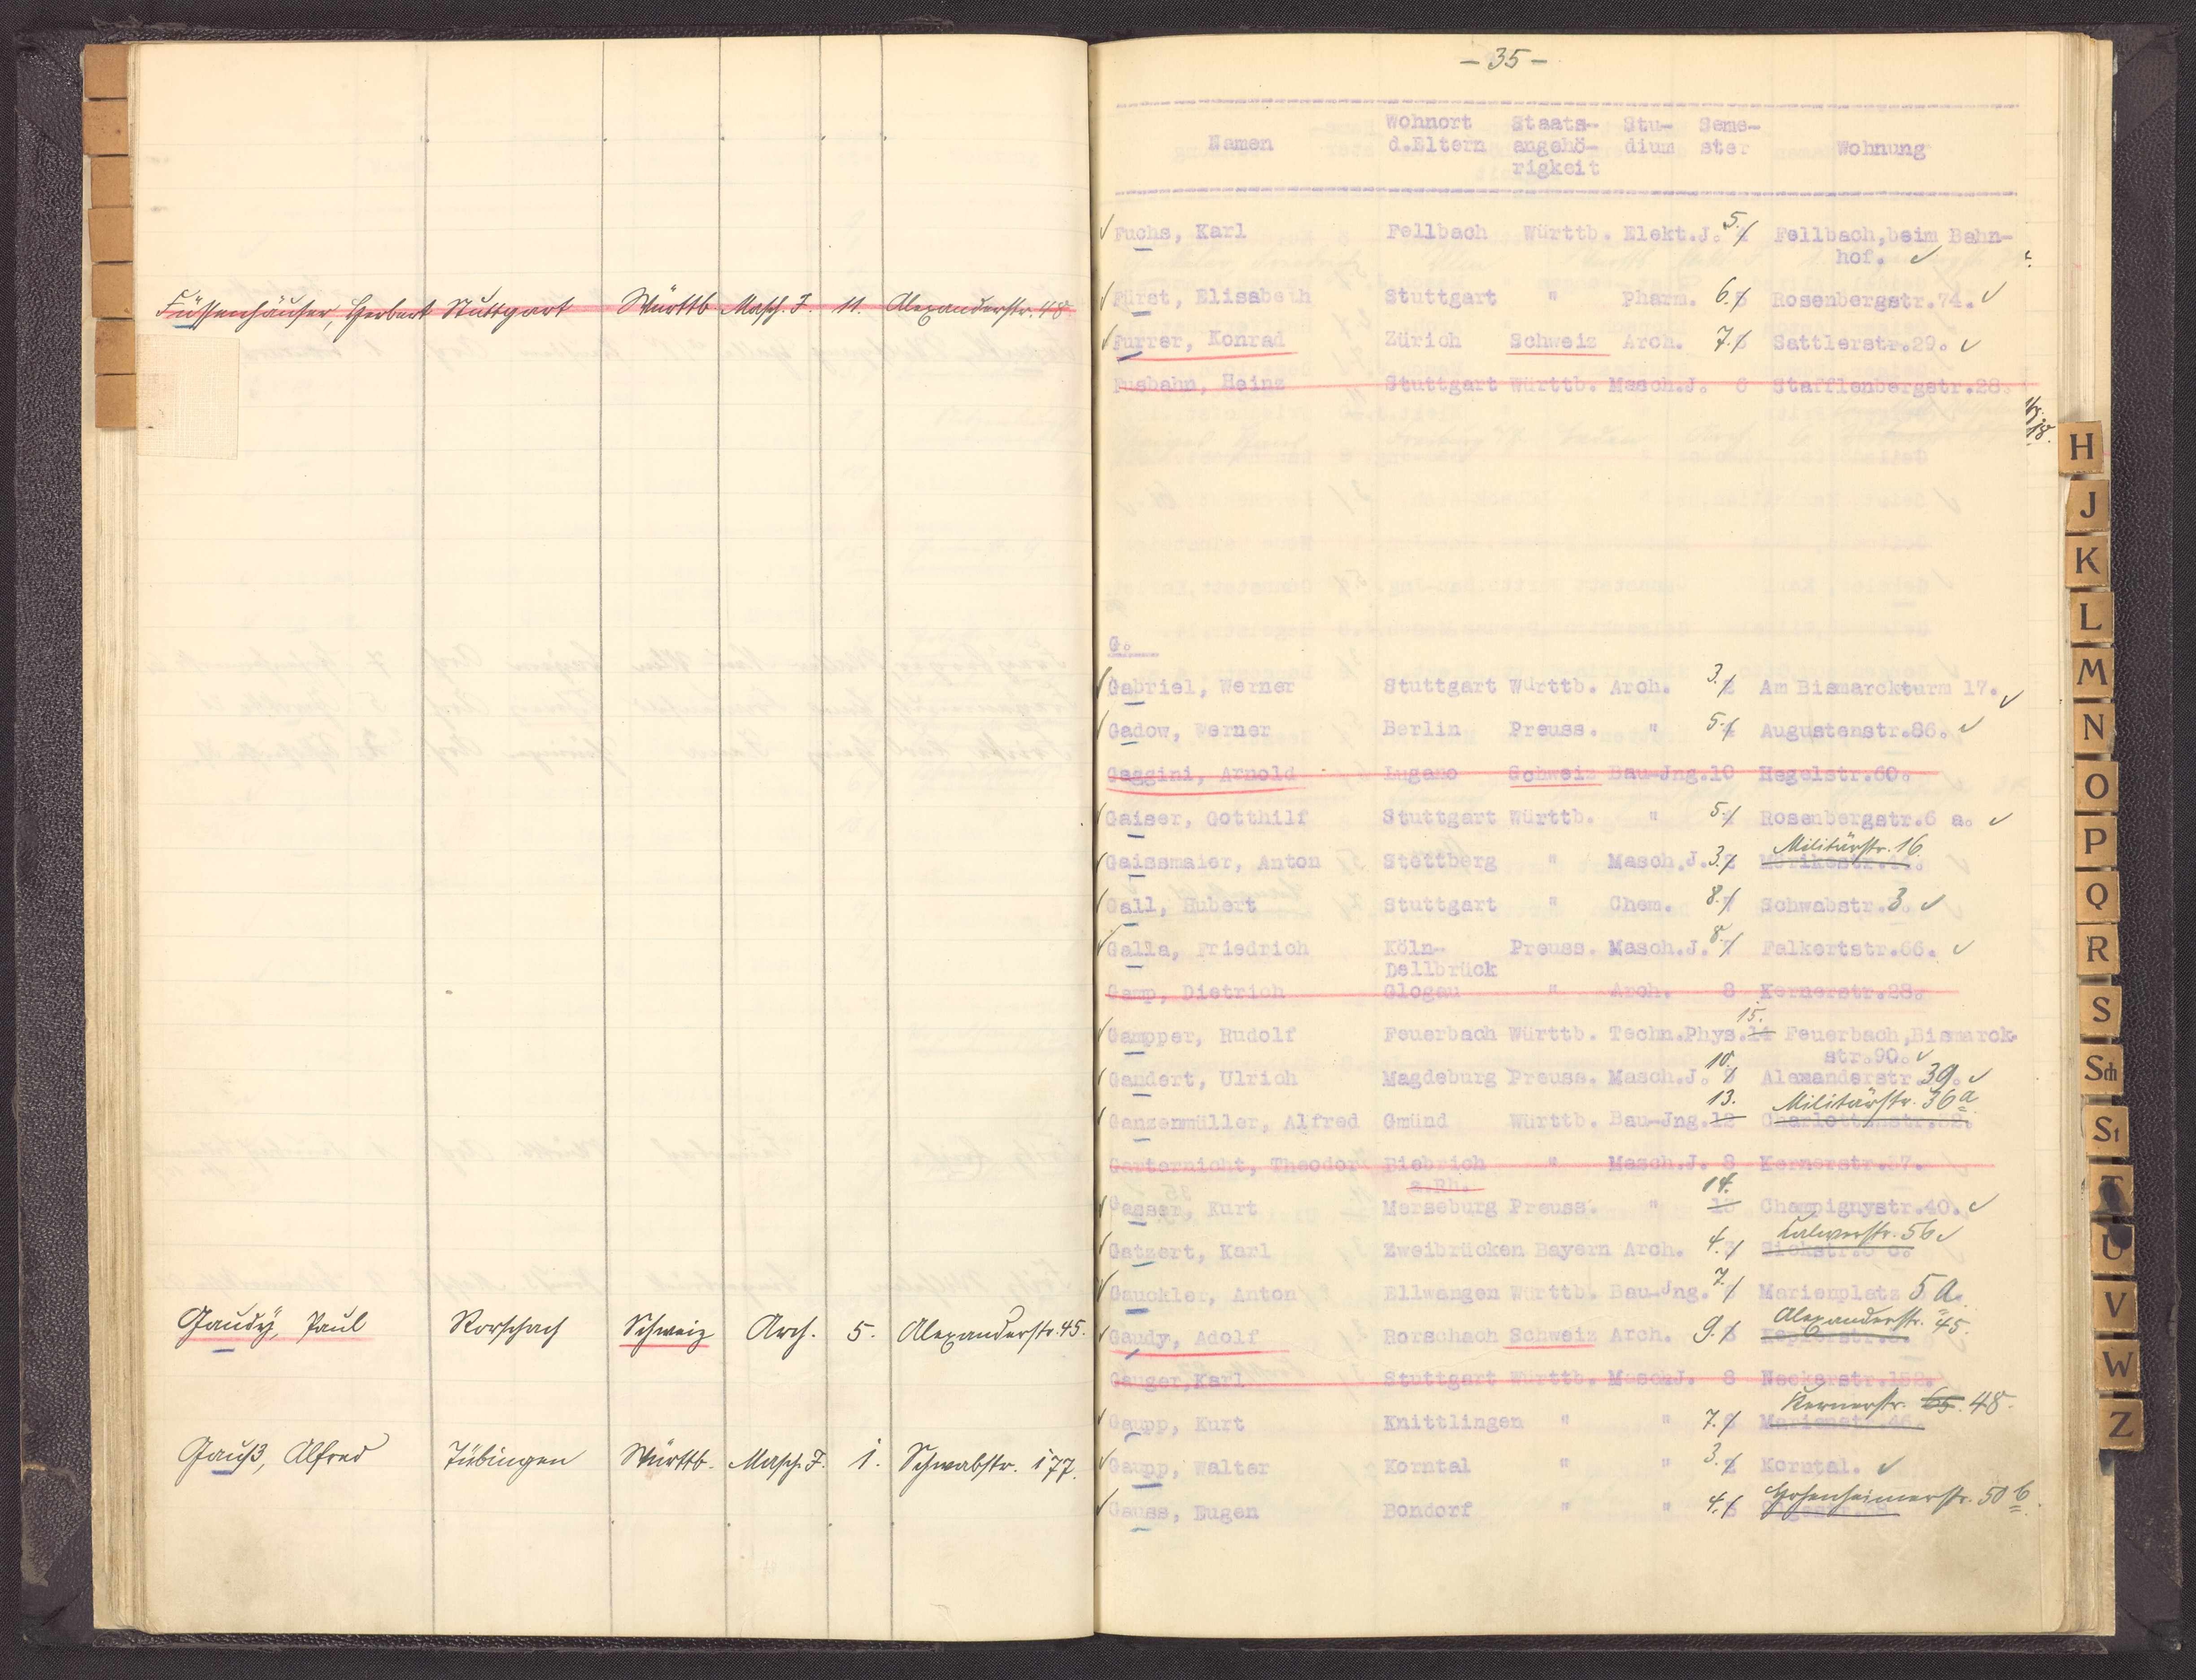 Füssenhäuser, Herbert Stuttgart Württb Masch. J. 11. Alexanderstr. 48
Gaudy, Paul Rorschach Schweiz Arch. 5. Alexanderstr. 45.
Gauß, Alfred Tübingen Württb. Masch. J. 1. Schwabstr. 177.
- 35 -
Wohnort Staats- Stu- Seme-
Namen d.Eltern angehö- dium ster Wohnung
rigkeit
5.
Fuchs, Karl Fellbach Württb. Elekt.J. 4 Fellbach,beim Bahn-
hof.
Fürst, Elisabeth Stuttgart " Pharm. 6. 5 Rosenbergstr.74.
Furrer, Konrad Zürich Schweiz Arch. 7. 6 Sattlerstr.29.
Fusbahn, Heinz Stuttgart Württb. Masch.J. 8 Stafflenbergstr.28.
G.
Gabriel, Werner Stuttgart Württb. Arch. 3. 2 Am Bismarckturm 17.
Gadow, Werner Berlin Preuss. " 5. 4 Augustenstr.86.
Gaggini, Arnold Lugano Schweiz Bau-Jng.10 Hegelstr.60.
Gaiser, Gotthilf Stuttgart Württb. " 5. 4 Rosenbergstr.6 a.
Militärstr. 16
Gaissmaier, Anton Stettberg " Masch.J. 3. 2 Mörikestr.
Gall, Hubert Stuttgart " Chem. 8. 7 Schwabstr. 3
Galla, Friedrich Köln- Preuss. Masch.J. 8. 7 Falkertstr.66.
Dellbrück
Gamp, Dietrich Glogau " Arch. 8 Kernerstr.28.
15.
Gampper, Rudolf Feuerbach Württb. Techn.Phys.14 Feuerbach,Bismarck-
str.90.
10.
Gandert, Ulrich Magdeburg Preuss. Masch.J. 9 Alexanderstr. 39.
13. Militärstr. 36 a
Ganzenmüller, Alfred Gmünd Württb. Bau-Jng.12 Charlottenstr.
Garternicht, Theodor Biebrich " Masch.J. 8 Kernerstr.
a.Rh. 14.
Gasser, Kurt Merseburg Preuss. " 13 Champignystr.40.
Calwerstr. 56
Gatzert, Karl Zweibrücken Bayern Arch. 4.
Gauckler, Anton Ellwangen Württb. Bau-Jng. 7. 6 Marienplatz 5 a.
Alexanderstr. 45.
Gaudy, Adolf Rorschach Schweiz Arch. 9. 8 Keplerstr.
Gauger,Karl Stuttgart Württb. Masch.J. 8 Neckarstr.152.
Kernerstr. 65. 48.
Gaupp, Kurt Knittlingen " " 7. Marienstr.46.
Gaupp, Walter Korntal " " 3. 2 Korntal.
Hohenheimerstr. 50 b
Gauss, Eugen Bondorf " " 4.
H
J
K
L
M
N
O
P
Q
R
S
Sch
St
T
U
V
W
Z